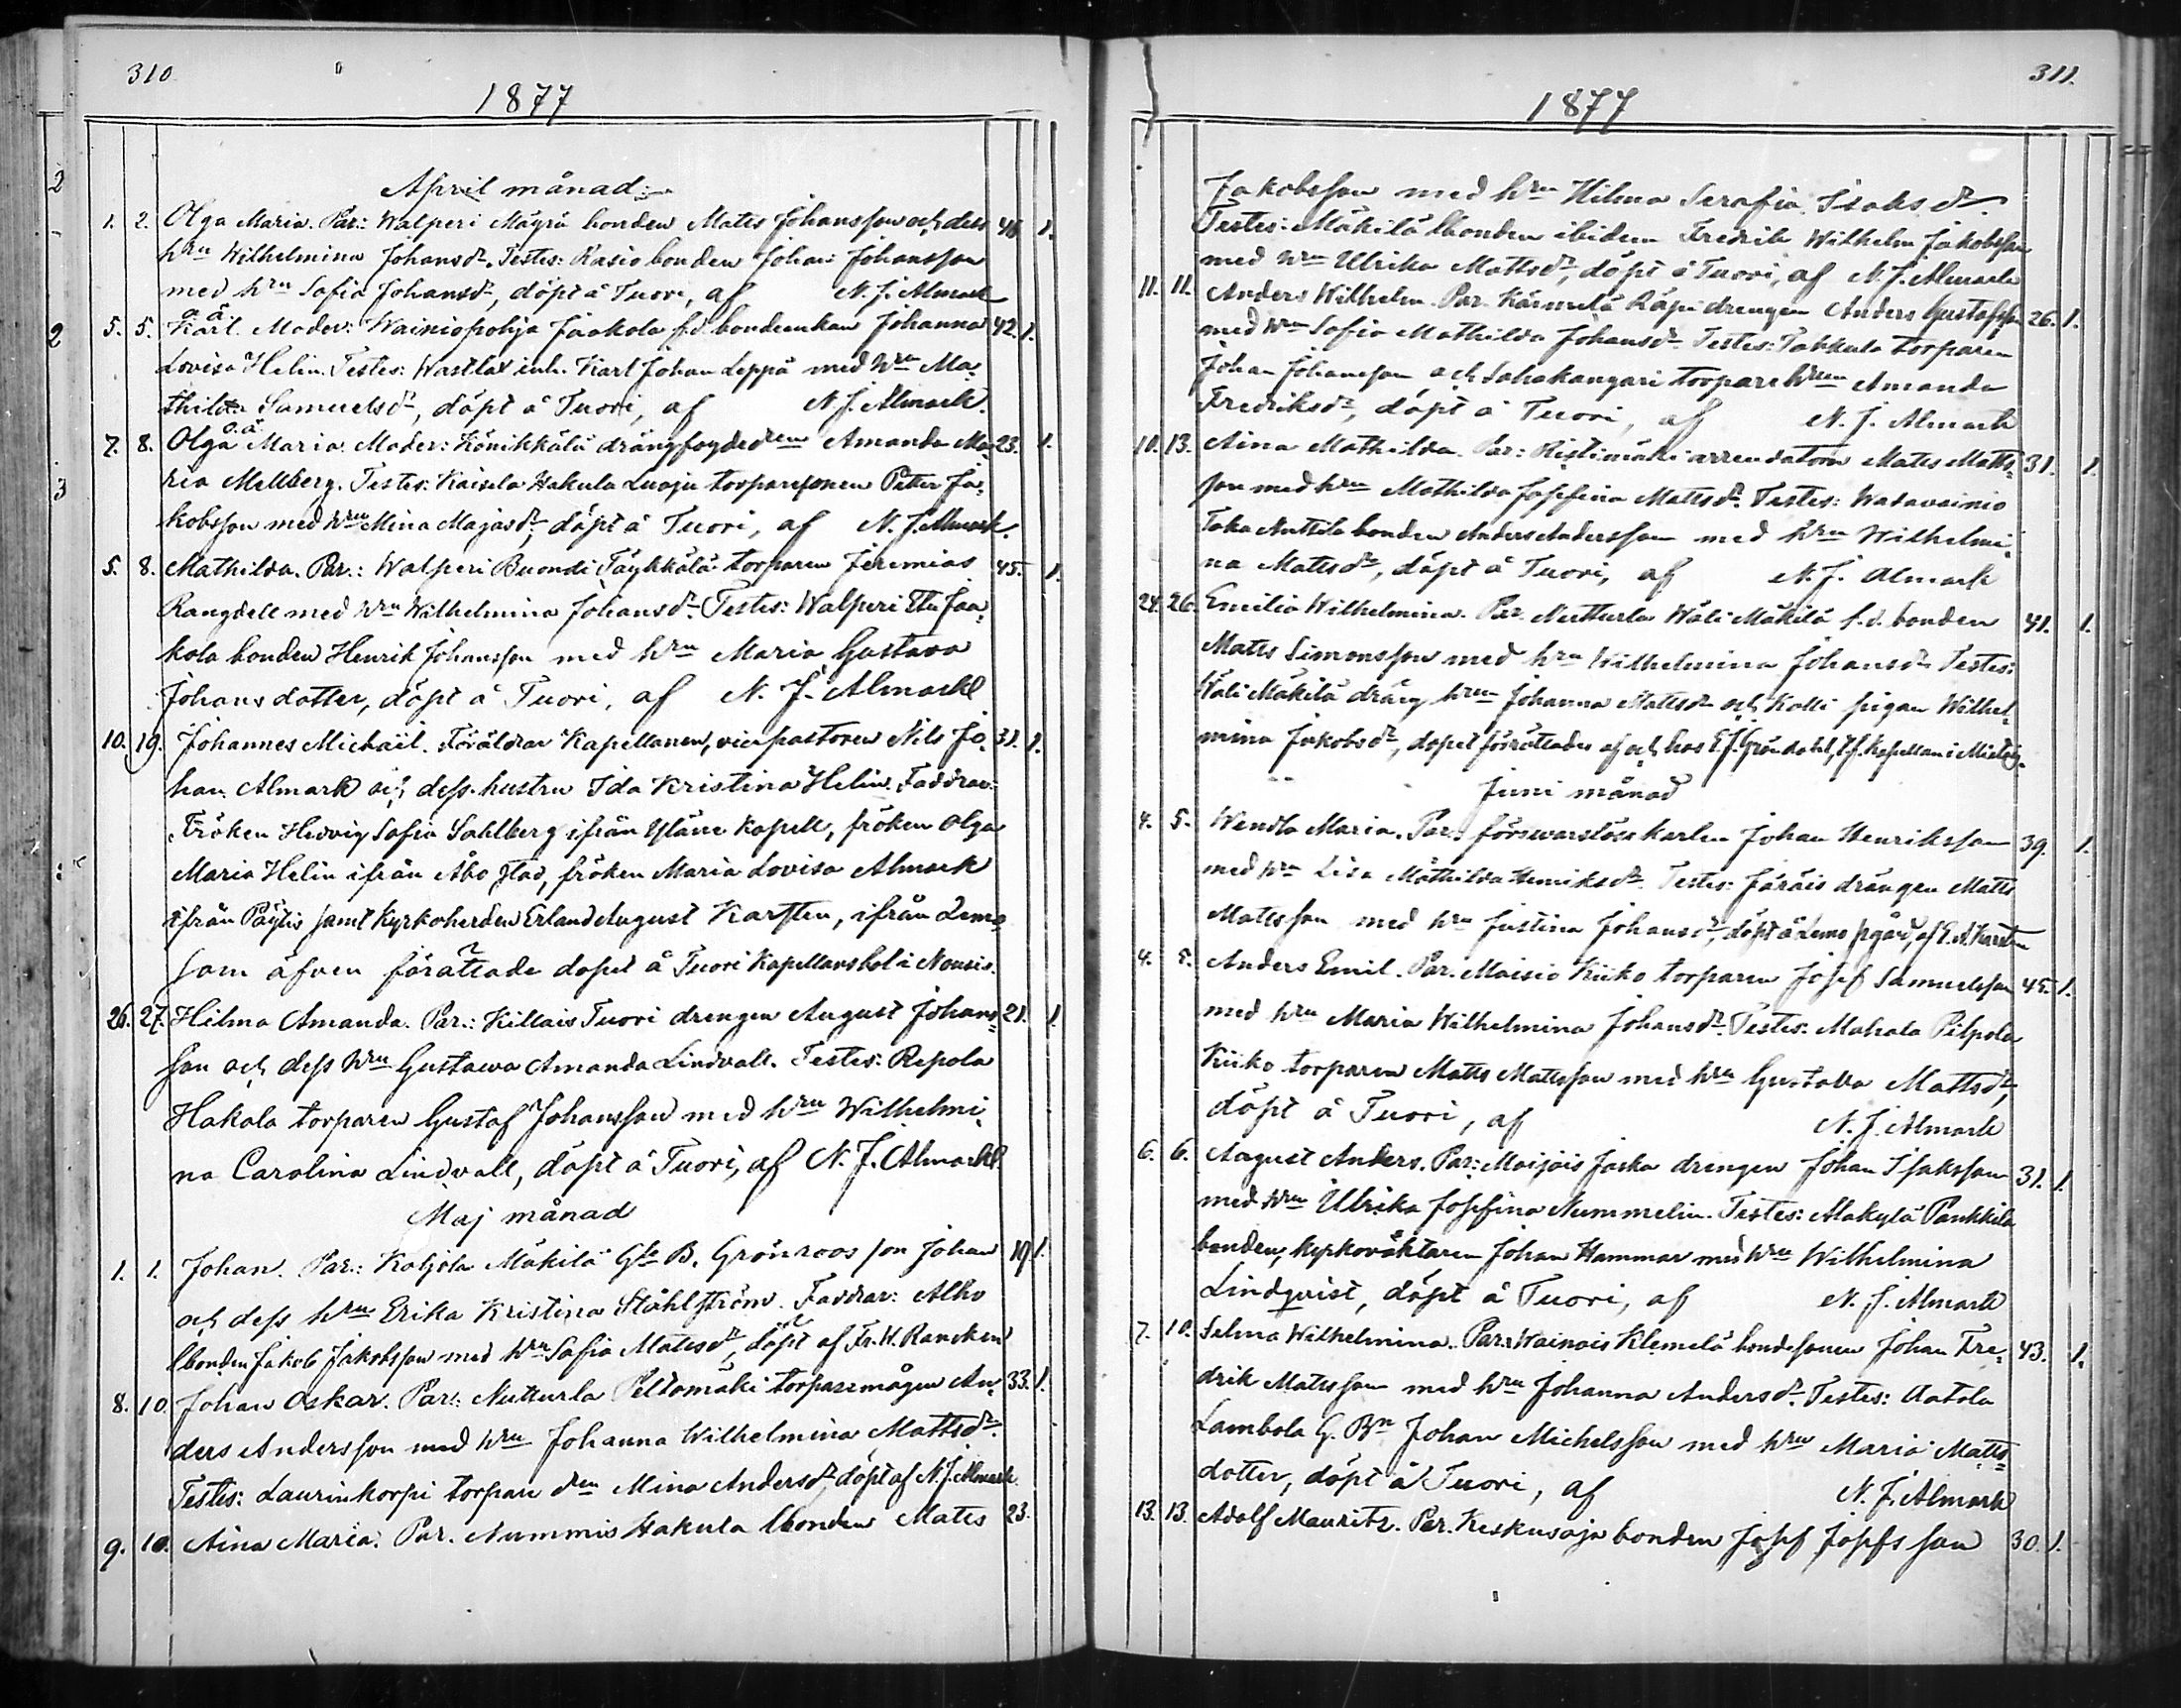 310
1877
April månad
1. 2. Olga Maria. Par.: Walperi Mäyrä bonden Matts Johansson och dess 46 1.
hru Wilhelmina Johansdr. Testes: Kasio bonden Johan Johansson
med hru Sofia Johansdr, döpt å Tuori, af N. J. Almark
o. ä.
5. 5. Karl. Moder: Wainiopohja Jaakola f.d. bondeenkan Johanna 42. 1.
Lovisa Helin. Testes: Wastlax inh. Karl Johan Leppä med hru Ma-
thilda Samuelsdr, döpt å Tuori, af N. J. Almark.
o. ä.
7. 8. Olga Maria. Moder: Könikkälä drängfogde Amanda Ma- 23. 1.
ria Mellberg. Testes: Kaisela Hakula Luoja torparesonen Petter Ja-
kobsson med hru Mina Majasdr, döpt å Tuori, af N. J. Almark.
5. 8. Mathilda. Par.: Walperi Buondi Täykkälä torparen Jeremias 45. 1.
Rangdell med hru Wilhelmina Johansdr. Testes: Walperi Etu Jaa-
kola bonden Henrik Johansson med hru Maria Gustava
Johansdotter, döpt å Tuori, af N. J. Almark
10. 19. Johannes Michaël. Föräldrar Kapellanen, vicepastoren Nils Jo- 31. 1.
han Almark och dess hustru Ida Kristina Helin. Faddrar:
Fröken Hedvig Sofia Sahlberg ifrån Yläne Kapell, fröken Olga
Maria Helin ifrån Åbo stad, fröken Maria Lovisa Almark
ifrån Päytis samt Kyrkoherden Erland August Karsten, ifrån Lemo
som äfven förättade dopet å Tuori Kapellansbol i Nousis.
26. 27. Hilma Amanda. Par.: Killais Tuori drengen August Johans- 21. 1.
son och dess hru Gustava Amanda Lindvall. Testes: Repola
Hakala torparen Gustaf Johansson med hru Wilhelmi-
na Carolina Lindvall, döpt å Tuori, af N. J. Almark.
Maj månad
1. 1. Johan. Par.: Koljola Mäkilä Gle B. Grönroos son Johan 19 1.
och dess hru Erika Kristina Ståhlström. Faddrar: Alho
lbonden Jakob Jakobsson med hru Sofia Mattsdr, döpt af Fr. W. Rancken
8. 10. Johan Oskar. Par.: Nutturla Peltomäki torparemågen An- 33. 1.
ders Andersson med hru Johanna Wilhelmina Mattsdr.
Testes: Laurinkorpi torpare dren Mina Andersdr, döpt af N. J. Almark.
9. 10. Aina Maria. Par. Nummis Hakula lbonden Matts 23.
311.
1877
Jakobsson med hru Hilma Serafia Isaksdr.
Testes: Mäkilä lbonden ibidem Fredrik Wilhelm Jakobsson
med hru Ulrika Mattsdr, döpt å Tuori, af N. J. Almark
11. 11. Anders Wilhelm. Par. Kärmelä Räpi drengen Anders Gustafsson 26. 1.
med hru Sofia Mathilda Johansdr. Testes: Takkula torparen
Johan Johansson och Sahakangari torpare hrun Amanda
Fredriksdr, döpt å Tuori, af N. J. Almark
10. 13. Aina Mathilda. Par: Ristimäki arrendatorn Matts Matts- 31. 1.
son med hru Mathilda Josefina Mattsdr. Testes: Watavainio
Taka Anttila bonden Anders Andersson med hru Wilhelmi-
na Mattsdr, döpt å Tuori, af N. J. Almark
24. 26. Emilia Wilhelmina. Par. Nutturla Wäli Mäkilä f.d. bonden 41. 1.
Matts Simonsson med hru Wilhelmina Johansdr Testes:
Wäli Mäkilä dräng hrun Johanna Mattsdr och Kolli pigan Wilhel-
mina Jakobsdr, dopet förrättades af och hos E. J. Gröndahl, tf. Kapellan i
Juni månad
4. 5. Wendla Maria. Par.: försvarslöse karlen Johan Henriksson 39. 1.
med hru Lisa Mathilda Henriksdr. Testes: Järäis drängen Matts
Mattsson med hru Justina Johansdr, döpt å Lemo pgård, af E. A. Karsten
4. 5. Anders Emil. Par. Moisio Kiiko torparen Josef Samuelsson 45. 1.
med hru Maria Wilhelmina Johansdr. Testes: Mahala Pilpola
Kiiko torparen Matts Mattsson med hru Gustava Mattsdr,
döpt å Tuori, af N. J. Almark
6. 6. August Anders. Par: Moijois Jaska drengen Johan Isaksson 31. 1.
med hru Ulrika Josefina Nummelin. Testes: Alakylä Pankkila
bonden, kyrkoväktaren Johan Hammar med hru Wilhelmina
Lindqvist, döpt å Tuori, af N. J. Almark
7. 10. Selma Wilhelmina. Par: Wainois Klemelä bondesonen Johan Fre- 43. 1.
drik Mattsson med hru Johanna Andersdr. Testes: Aatola
Lambola G. Bn Johan Michelsson med hru Maria Matts-
dotter, döpt å Tuori, af N. J. Almark
13. 13. Adolf Mauritz. Par. Keskusoja bonden Josef Josefsson 30. 1.